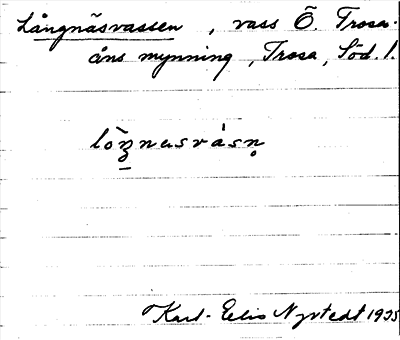 Långnäsvassen, vass Ö. Trosa-
åns mynning, Trosa, Söd. l.
Karl-Nystedt 1935